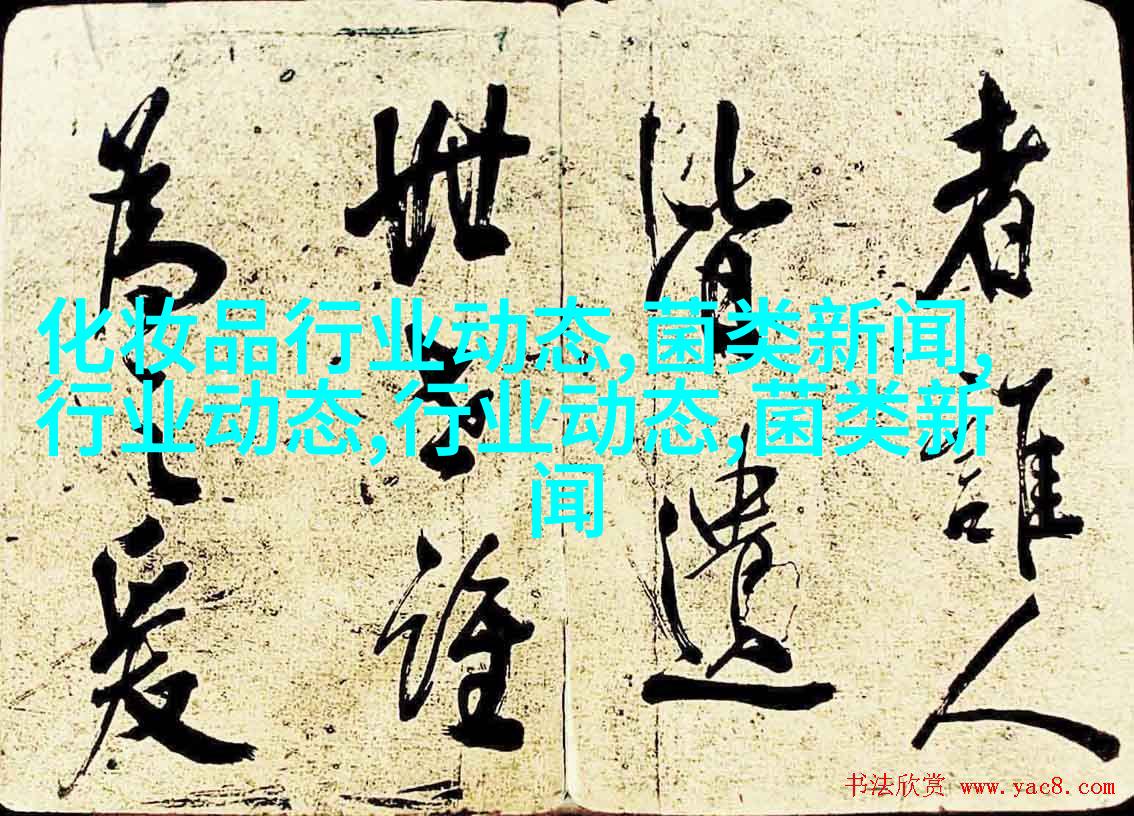 者誰人
皆遺
世誰
為爰
化妆品行业动态,菌类新闻,
行业动态,行业动态,菌类新
闻
书法欣赏 www.yac8.com